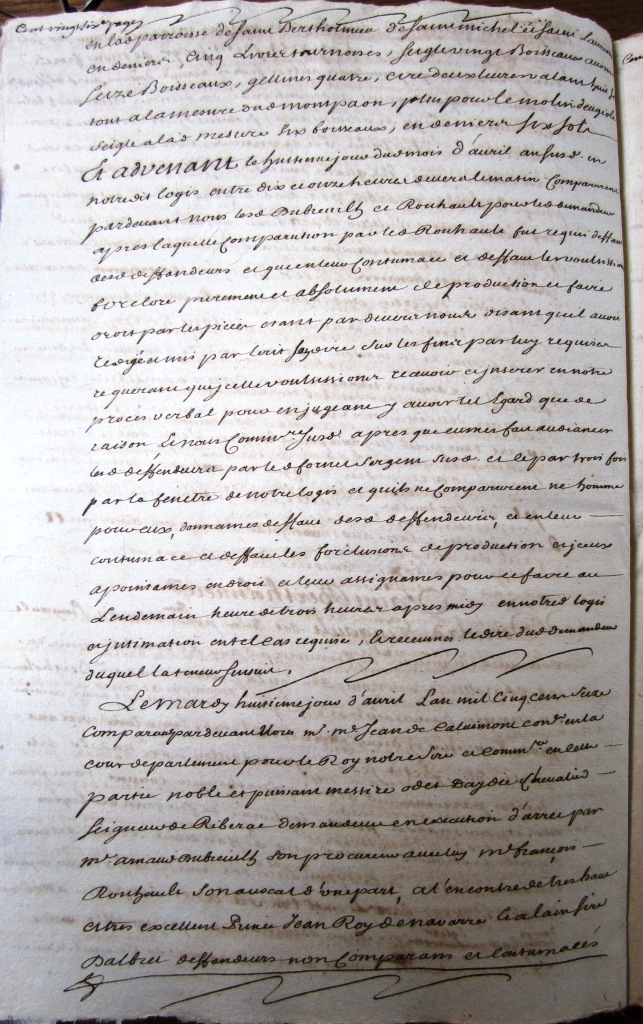 Cent vingt six pages
en lad parroisse de saint Berthoumeu de saint michel et saint Laurens
en deniers, cinq Livres tournoises, seigle vingt Boisseaux avoine
seize Boisseaux, gellines quatre, cire deux livres a lam
tout a la mesure dud monpaon, plus pour le molin de
seigle a lad mesure six boisseaux, en deniers six sols
Et advenant le huitieme jour dud mois d'avril au susd. en
notredit logis entre dix et onze heures devers le matin Comparurent
pardevant nous lesd Dubreuilh et Rouhault pour led demandeur
apres laquelle Comparution par led Rouhault fut requis deffaut
desd deffendeurs et que en leur Contumace et deffaut les voulussions
forclore purement et absolument de production et faire
droit par les pieces etant pardevers nous disant qu'il avoit
redigé et mis par ecrit son dire sur les fins par luy requises
requerant que jcelle voulussions recevoir et inserer en notre
procès verbal pour en jugeant y avoir tel Egard que de
raison Et nous Commre. susd. apres que eumes fait audiancer
lesd deffendeurs par led fornel sergent susd. et ce par trois fois
par la fenetre de notre logis et quils ne Comparurent ne homme
pour eux, donnames deffaut desd deffendeurs, et en leur
contumace et deffaut les forclusions de production et jceux
apointames en droit et leur assignames pour ce faire au
Lendemain heure de trois heures apres midy en notred logis
et jntimation en tel cas requise, Et receumes le dire dud demandeur
duquel la teneur sensuit.
Le mardy huitieme jour d'avril Lan mil Cinq cens seize
Comparut pardevant Nous mr. me Jean de Calvimont conr. en la
cour de parlement pour le Roy notre sire et Commre en cette
partie noble et puissant messire odet Daydie Chevalier
seigneur de Riberac demandeur en execution d'arret par
me arnaud Dubreuilh son procureur avec luy me françois
Rouhault son avocat d'une part, a l'encontre de tres haut
et tres excellent Prince Jean Roy de navarre Et alain sire
Dalbret deffendeurs non Comparans et Contumacés